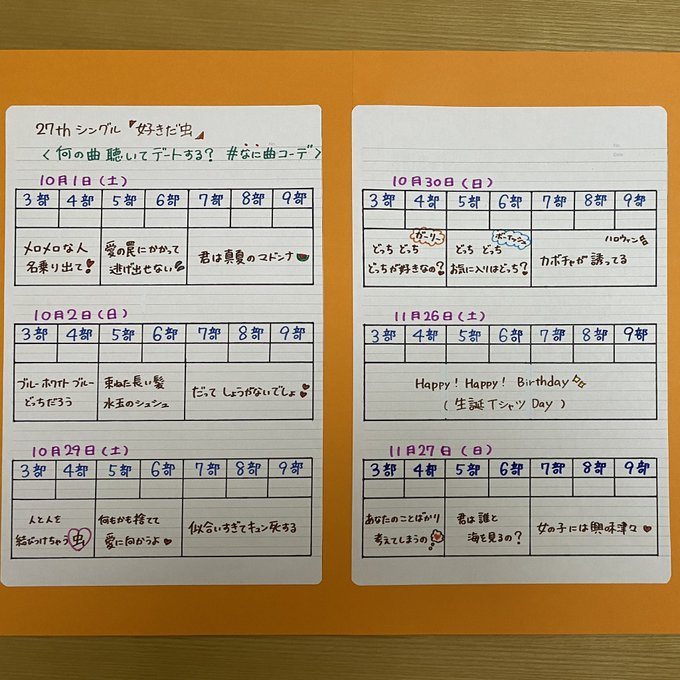 27th シングル『好きだ虫』
<何の曲聴いてデートする? #なに曲コーデ>
10月1日(土)
3部 4部 5部 6部 7部 8部 9部
メロメロな人 愛の罠にかかって 君は真夏のマドンナ
名乗り出て! 逃げ出せない
10月2日(日)
3部 4部 5部 6部 7部 8部 9部
ブルーホワイトブルー 束ねた長い髪 だってしょうがないでしょ
どっちだろう 水玉のシュシュ
10月29日(土)
3部 4部 5部 6部 7部 8部 9部
人と人を 何もかも捨てて 似合いすぎてキュン死する
結びつけちゃう虫 愛に向かうよ
Date
10月30日(日)
3部 4部 5部 6部 7部 8部 9部
ガーリー ボーイッシュ ハロウィン
どっち どっち どっち どっち カボチャが誘ってる
どっちが好きなの? お気に入りはどっち?
11月26日(土)
3部 4部 5部 6部 7部 8部 9部
Happy! Happy! Birthday
(生誕TシャツDay)
11月27日(日)
3部 4部 5部 6部 7部 8部 9部
あなたのことばかり 君は誰と 女の子には興味津々
考えてしまうの 海を見るの?